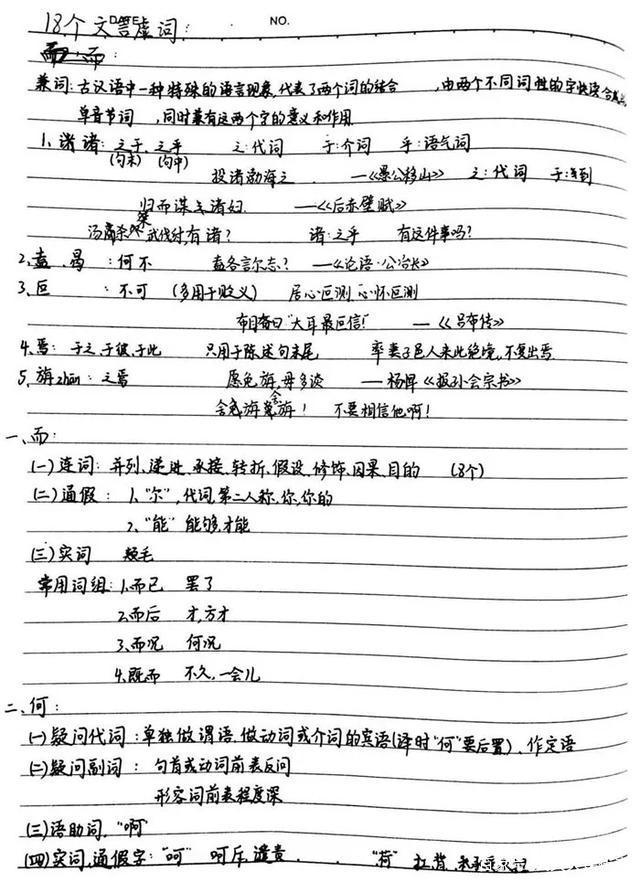 18个文言虚词:
DATE NO.
而:
兼词:古汉语中一种特殊的语言现象,代表了两个词的结合,由两个不同词性的字快读合成
单音节词,同时兼有这两个字的意义和作用
1、诸 诸:之于、之乎 之:代词 于:介词 乎:语气词
(句末) (句中)
投诸渤海之 —《愚公移山》 之:代词 于:到
归而谋诸妇 —《后赤壁赋》
汤放桀 武伐纣,有诸? 诸:之乎 有这件事吗?
2、盍、曷:何不 盍各言尔志? —《论语·公冶长》
3、叵:不可 (多用于贬义) 居心叵测,心怀叵测
布目备曰"大耳最叵信!" —《吕布传》
4、焉:于之,于彼,于此 只用于陈述句末尾 率妻子邑人来此绝境,不复出焉
5、旃zhān:之焉 愿免旃,毋多谈 —杨恽《报孙会宗书》
舍旃舍旃! 不要相信他啊!
一、而:
(一)连词:并列、递进、承接、转折、假设、修饰、因果、目的 (8个)
(二)通假:1、"尔",代词,第二人称,你,你的
2、"能" 能够,才能
(三)实词 颊毛
常用词组:1.而已 罢了
2.而后 才,方才
3.而况 何况
4.既而 不久,一会儿
二、何:
(一)疑问代词:单独做谓语,做动词或介词的宾语(译时"何"要后置)、作定语
(二)疑问副词:句首或动词前表反问
形容词前表程度深
(三)语助词,"啊"
(四)实词,通假字:"呵" 呵斥,谴责 "荷" 扛,背